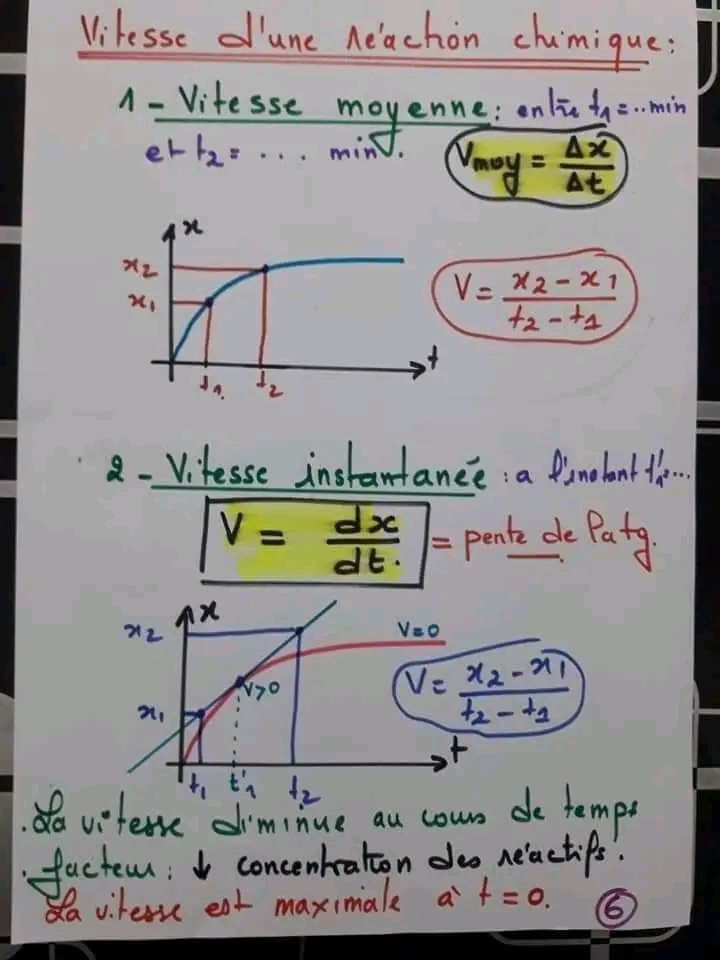 Vitesse d'une réaction chimique:
1 - Vitesse moyenne: entre t1 = .. min
et t2 = . . . min.
Vmoy = Δx/Δt
x
x2
x1
t1
t2
t
V = x2 - x1 / t2 - t1
2 - Vitesse instantanée: a l'instant t'1...
V = dx/dt. = pente de la tg.
x
x2
x1
V>0
V=0
t1
t'1
t2
t
V = x2 - x1 / t2 - t1
. La vitesse diminue au cours de temps
. facteur: ↓ concentration des réactifs.
La vitesse est maximale à t = 0.
6